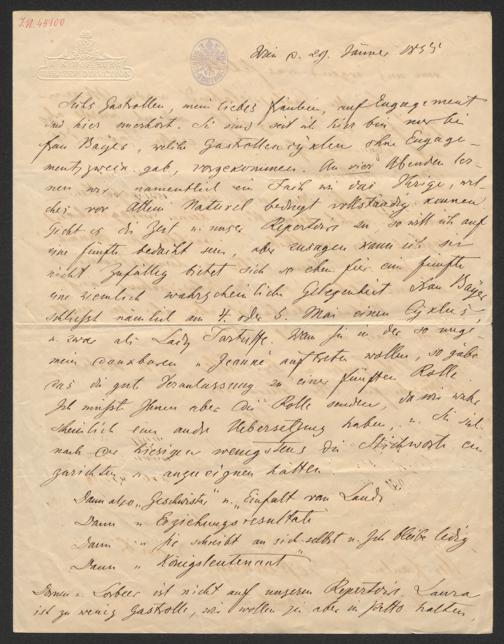 I.N. 48100
Wien d. 29. Jänner 1855
Sechs Gastrollen, mein liebes Fräulein, auf Engagement
sind hier unerhört. Sie sind seit ich hier bin nur bei
Frau Bayer, welche Gastrollencyklen ohne Engage-
mentszweck gab, vorgekommen. An vier Abenden ler-
nen wir namentlich ein Fach wie das Ihrige, wel-
ches vor Allem Naturel bedingt vollständig kennen.
Giebt es die Zeit u. unser Repertoire zu so will ich auf
eine fünfte bedacht sein, aber zusagen kann ich sie
nicht. Zufällig bietet sich so eben für ein fünfte
eine ziemlich wahrscheinliche Gelegenheit. Frau Bayer
schließt nämlich am 4. oder 5. Mai einen Cyklus,
u. zwar als Lady Tartuffe. Wenn Sie in der so
mein dankbaren Jeanne auftreten wollen, so gäbe
das die gute Veranlassung zu einer fünften Rolle.
Ich müßte Ihnen aber die Rolle senden, da wir wahr-
scheinlich eine andre Uebersetzung haben, u. Sie sich
nach der hiesigen wenigstens die Stichworte ein-
zurichten u. anzueignen hätten
Dann also „Geschwister“ u. „Einfalt vom Lande“
Dann „Erziehungsresultate
Dann „Sie schreibt an sich selbst u. Ich bleibe ledig
Dann „Königslieutenant“
Lorbeer ist nicht auf unserem Repertoire, Laura
ist zu wenig Gastrolle, wir wollen sie aber in petto halten,